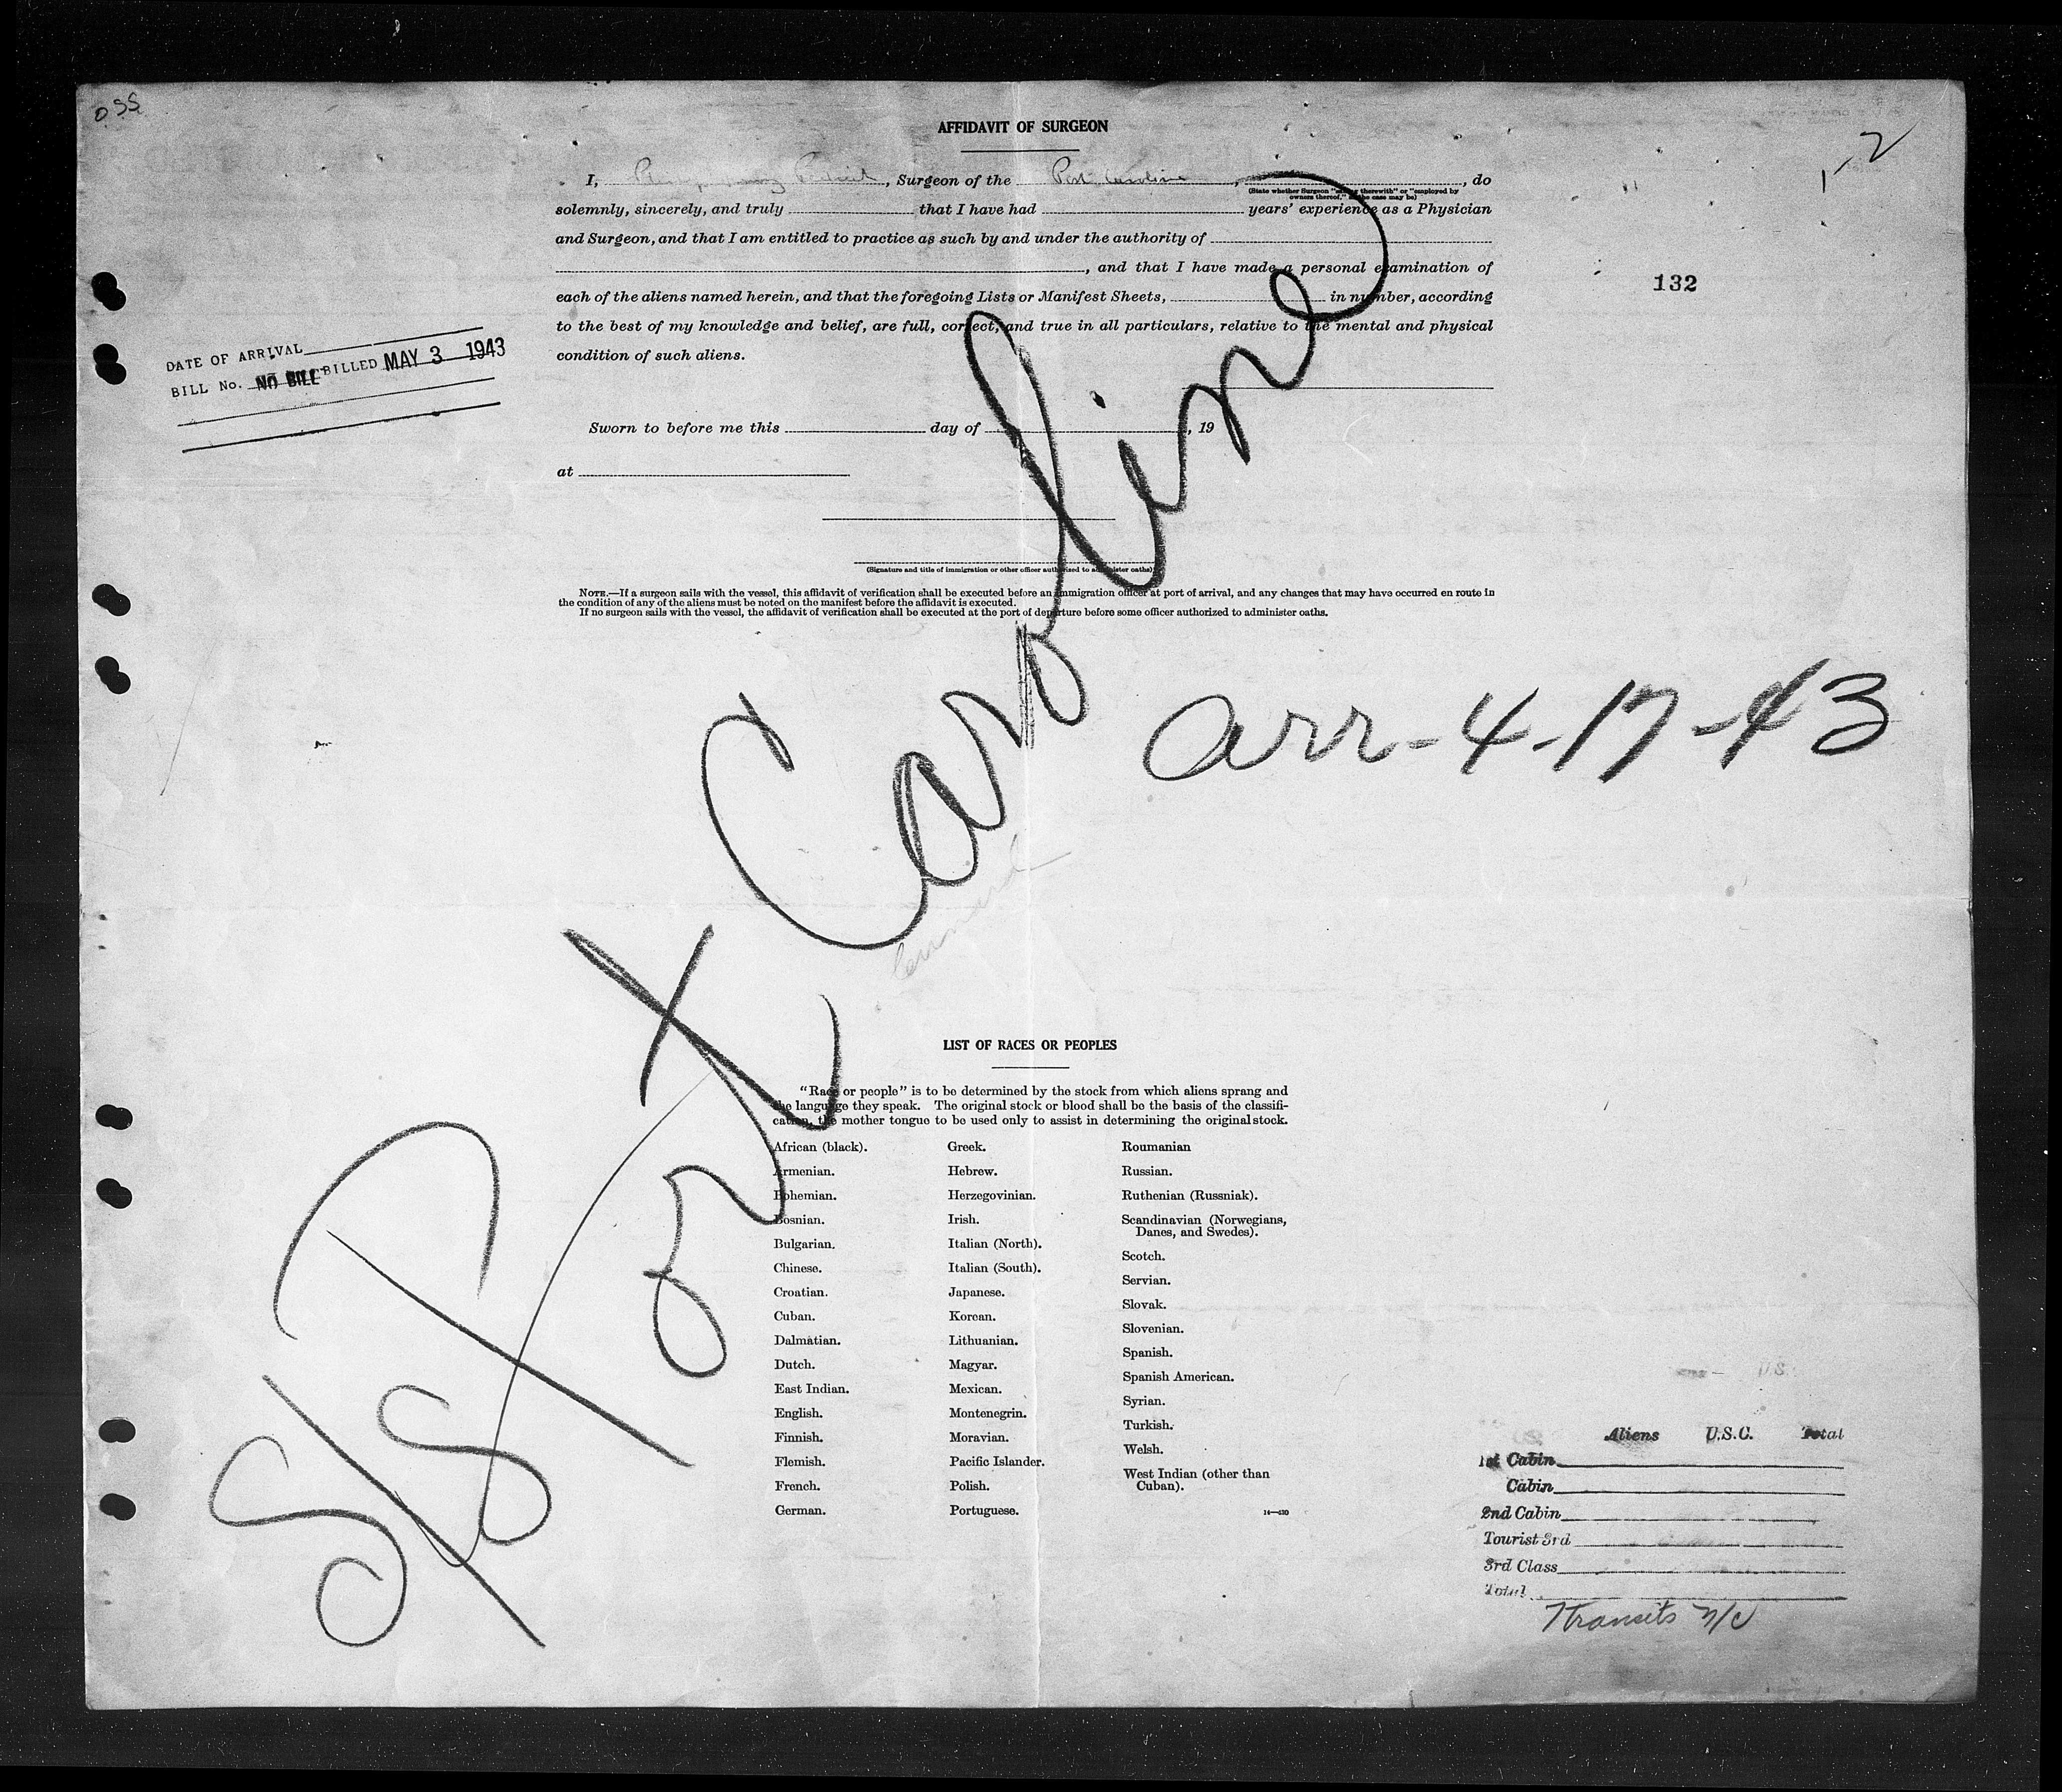 OSS
AFFIDAVIT OF SURGEON
1-2
I, , Surgeon of the Port Caroline, , do
(State whether Surgeon "sailing therewith" or "employed by
owners thereof," as the case may be)
solemnly, sincerely, and truly that I have had years' experience as a Physician
and Surgeon, and that I am entitled to practice as such by and under the authority of
, and that I have made a personal examination of
132
each of the aliens named herein, and that the foregoing Lists or Manifest Sheets, in number, according
to the best of my knowledge and belief, are full, correct, and true in all particulars, relative to the mental and physical
condition of such aliens.
DATE OF ARRIVAL
BILL No. NO BILL BILLED MAY 3 1943
Sworn to before me this day of , 19
at
(Signature and title of immigration or other officer authorized to administer oaths)
NOTE.—If a surgeon sails with the vessel, this affidavit of verification shall be executed before an immigration officer at port of arrival, and any changes that may have occurred en route in
the condition of any of the aliens must be noted on the manifest before the affidavit is executed.
If no surgeon sails with the vessel, the affidavit of verification shall be executed at the port of departure before some officer authorized to administer oaths.
S/S Port Caroline
arr-4-17-43
LIST OF RACES OR PEOPLES
"Race or people" is to be determined by the stock from which aliens sprang and
the language they speak. The original stock or blood shall be the basis of the classifi-
cation, the mother tongue to be used only to assist in determining the original stock.
African (black).
Armenian.
Bohemian.
Bosnian.
Bulgarian.
Chinese.
Croatian.
Cuban.
Dalmatian.
Dutch.
East Indian.
English.
Finnish.
Flemish.
French.
German.
Greek.
Hebrew.
Herzegovinian.
Irish.
Italian (North).
Italian (South).
Japanese.
Korean.
Lithuanian.
Magyar.
Mexican.
Montenegrin.
Moravian.
Pacific Islander.
Polish.
Portuguese.
Roumanian
Russian.
Ruthenian (Russniak).
Scandinavian (Norwegians,
Danes, and Swedes).
Scotch.
Servian.
Slovak.
Slovenian.
Spanish.
Spanish American.
Syrian.
Turkish.
Welsh.
West Indian (other than
Cuban).
14—430
Aliens U.S.C. Total
1st Cabin
Cabin
2nd Cabin
Tourist 3rd
3rd Class
Total
7 transits N/C